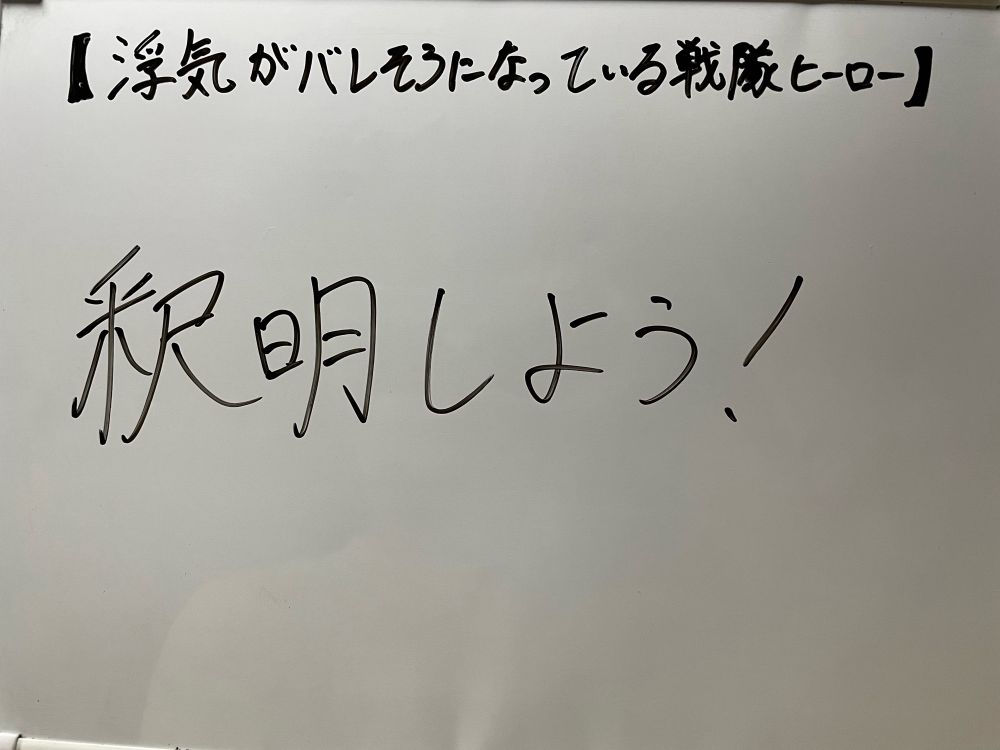 【浮気がバレそうになっている戦隊ヒーロー】
釈明しよう！